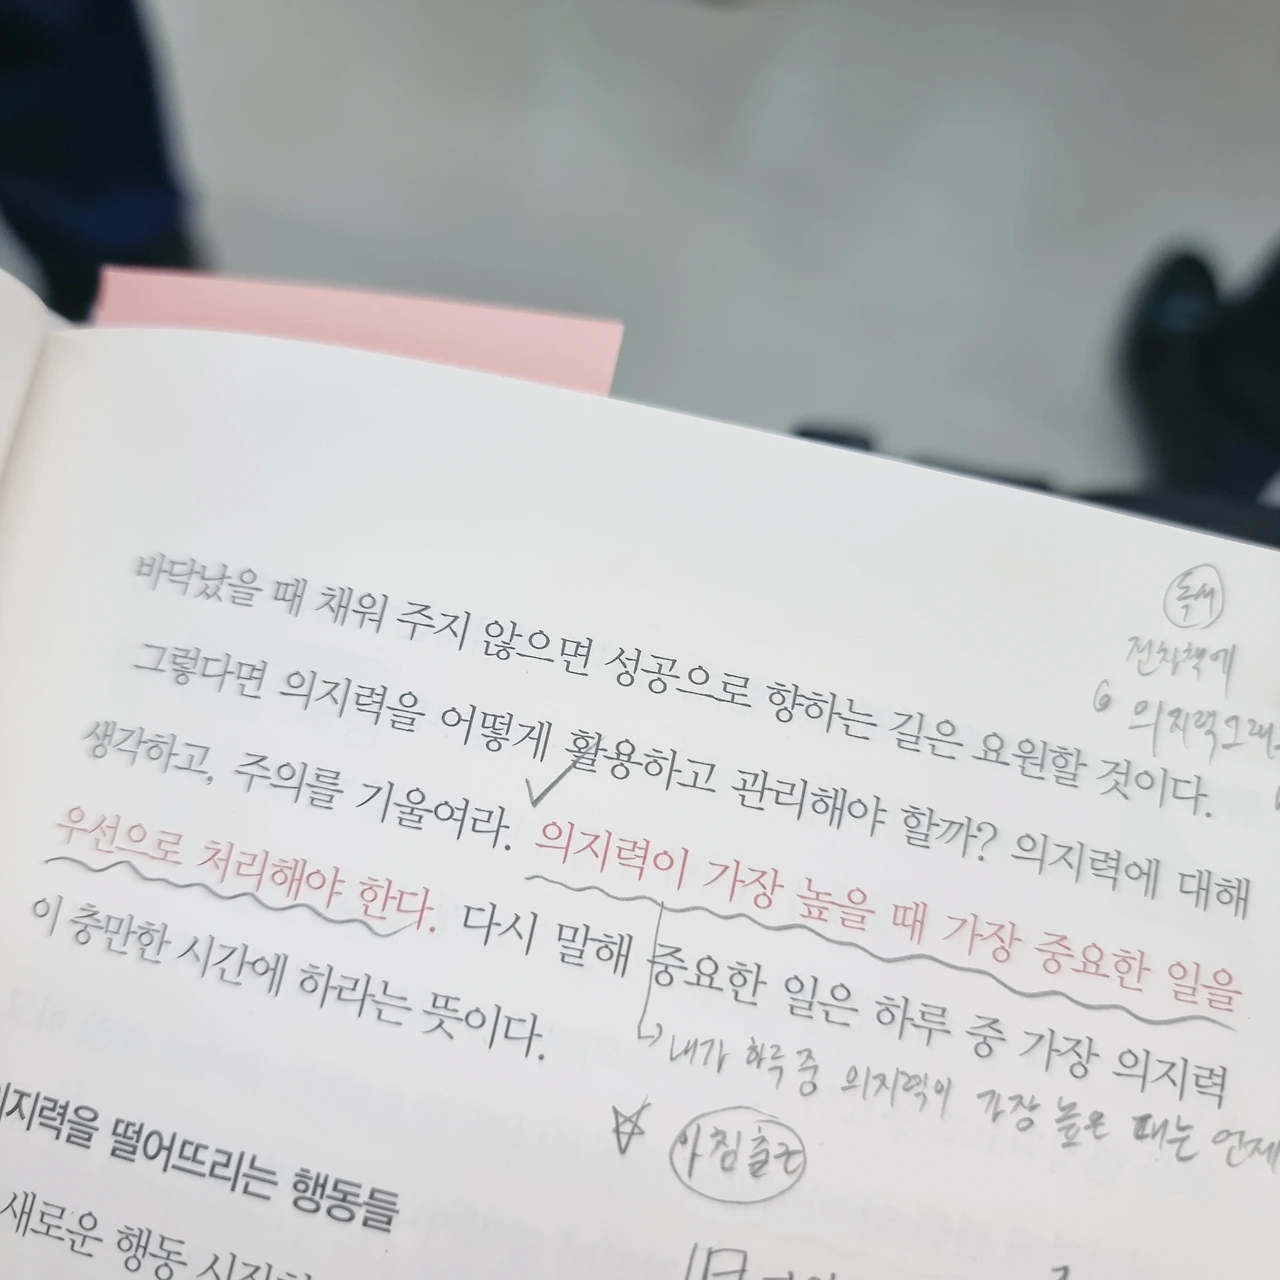 바닥났을 때 채워 주지 않으면 성공으로 향하는 길은 요원할 것이다.
그렇다면 의지력을 어떻게 활용하고 관리해야 할까? 의지력에 대해
생각하고, 주의를 기울여라. 의지력이 가장 높을 때 가장 중요한 일을
우선으로 처리해야 한다. 다시 말해 중요한 일은 하루 중 가장 의지력
이 충만한 시간에 하라는 뜻이다.
독서
의지력
내가 하루 중 의지력이 가장 높은 때는 언제
아침 출근
의지력을 떨어뜨리는 행동들
새로운 행동